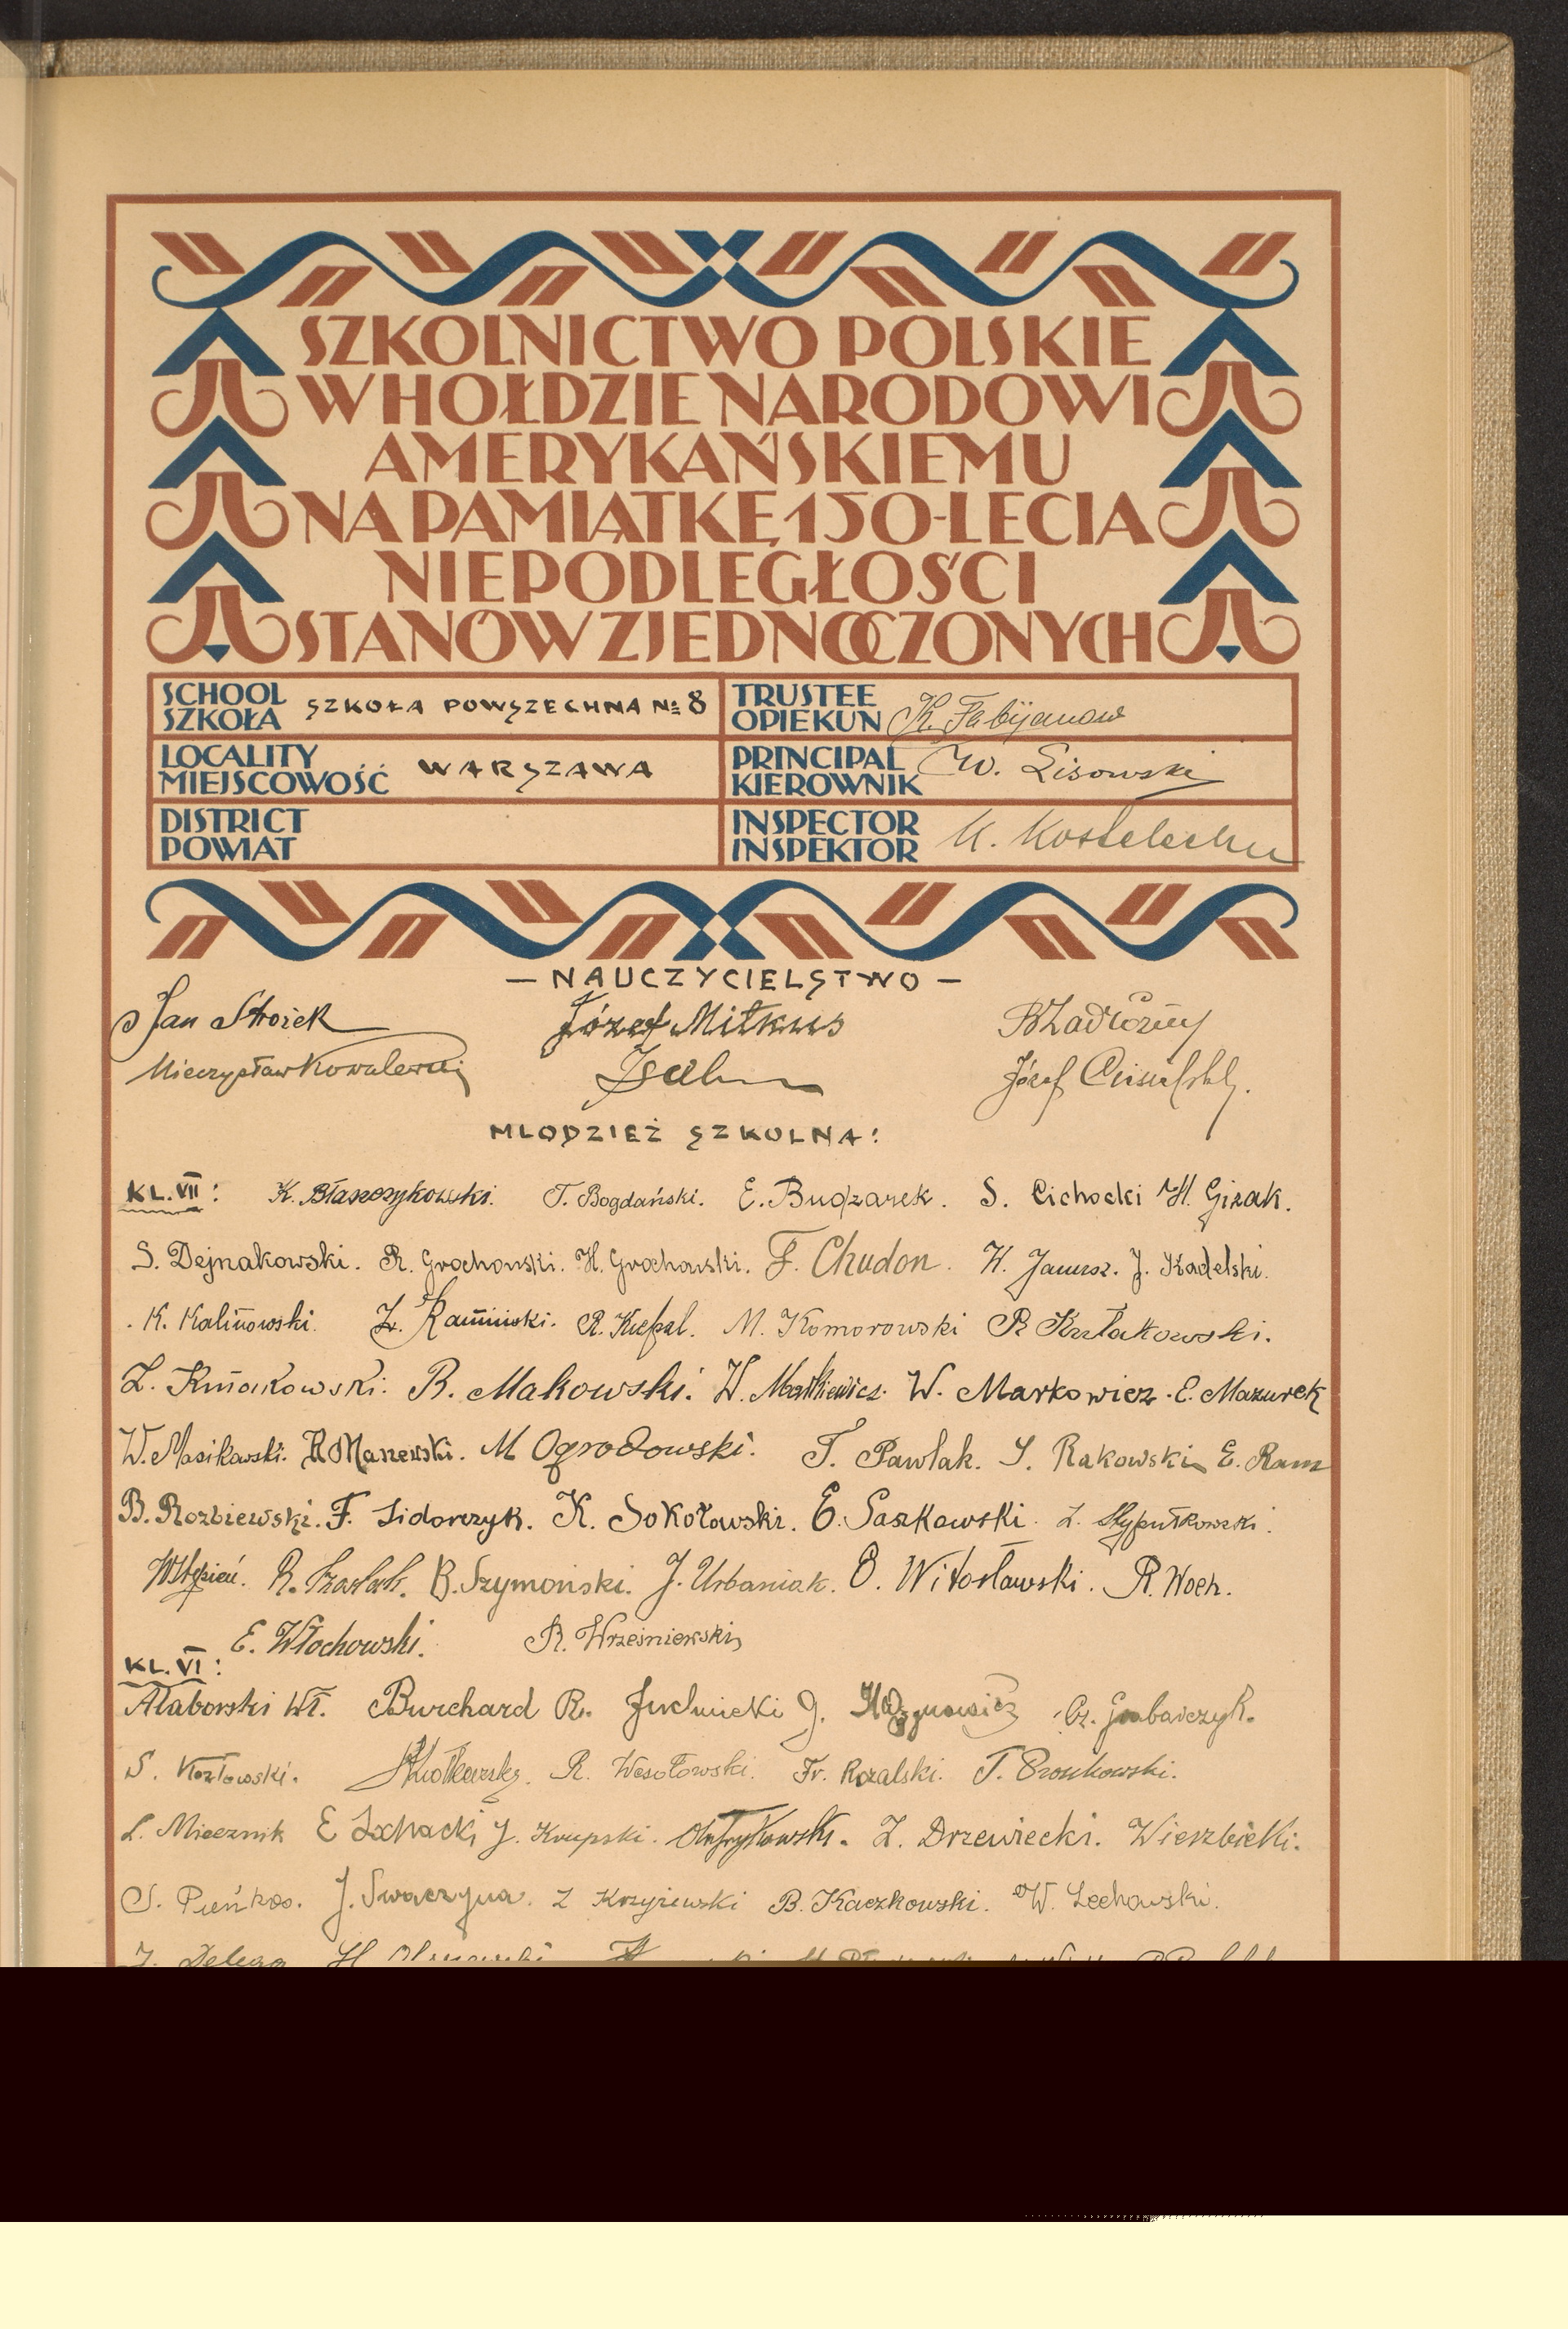 SZKOLNICTWO POLSKIE
W HOŁDZIE NARODOWI
AMERYKAŃSKIEMU
NA PAMIĄTKĘ 150-LECIA
NIEPODLEGŁOŚCI
STANÓW ZJEDNOCZONYCH
SCHOOL
SZKOŁA SZKOŁA POWSZECHNA № 8
TRUSTEE
OPIEKUN K. Fabijanow
LOCALITY
MIEJSCOWOŚĆ WARSZAWA
PRINCIPAL
KIEROWNIK W. Lisowski
DISTRICT
POWIAT
INSPECTOR
INSPEKTOR
— NAUCZYCIELSTWO —
Jan Stroiek Józef Mitkus
Mieczysław Kowalewski Józef
MLODZIEŻ SZKOLNA:
KL. VII: K. Błaszczykowski. T. Bogdański. E. Budzarek. S. Cichocki H. Gizak.
S. Dejnakowski. R. Grochowski. H. Grochowski. F. Chudon. K. Janusz. J. Kadelski.
K. Kalinowski. Z. Kamiński. R. M. Komorowski R
Z. B. Makowski. W. W. Markowicz. E. Mazurek
W. Masikowski. R Manewski. M Ogrodowski. T. Pawlak. S. Rakowski E. Ram
B. Rozbiewski. F. Sidorczyk. K. Sokołowski. E. Saskowski. Z. Stypułkowski.
W Stępień. R. B. Szymoński. J. Urbaniak. O. Witosławski. R. Woch.
E. Włochowski. R. Wrześniewski
KL. VI:
Ataborski Wł. Burchard R. J. Cz. Grabarczyk.
S. Kozłowski. R. Wesołowski. Fr. Rozalski. T.
L. Miecznik E J. Krupski. Z. Drzewiecki. Wierzbicki.
S. Pieńkos. J. Swaczyna. Z Krzyżewski B. Kaczkowski. W. Lechowski.